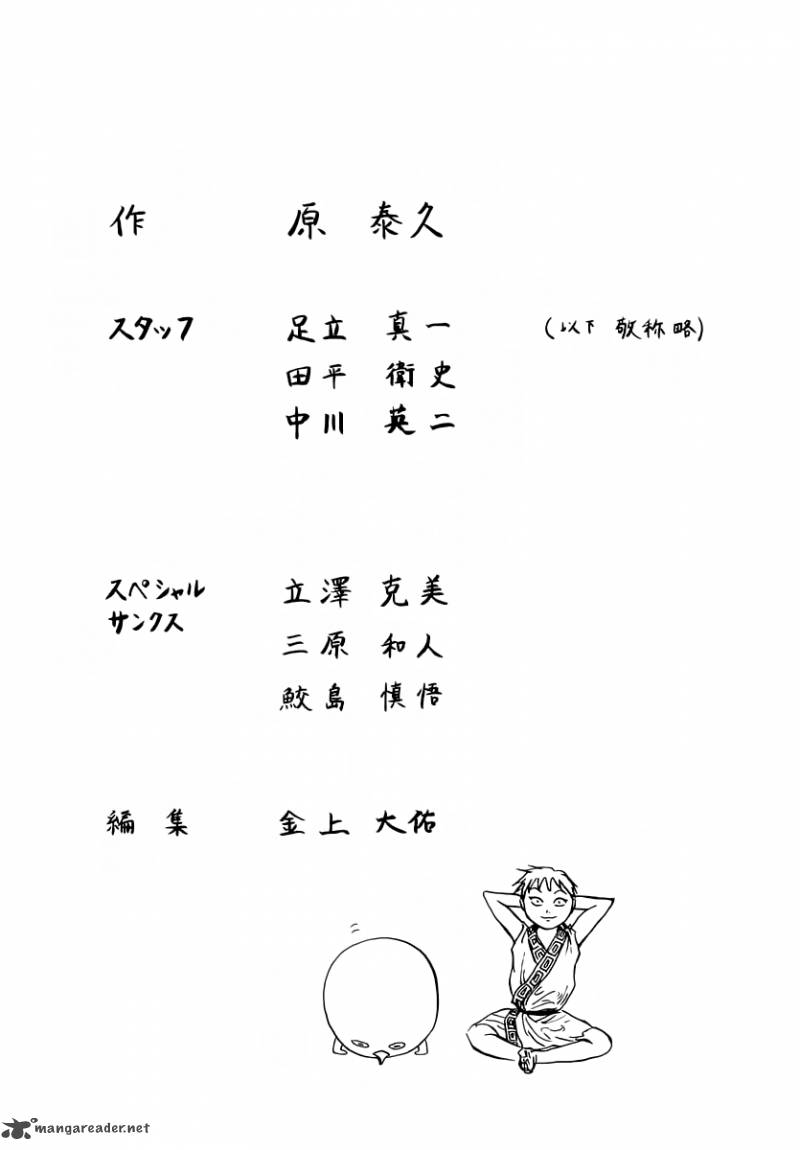 作 原 泰久
スタッフ 足立 真一 (以下 敬称略)
田平 衛史
中川 英二
スペシャル
サンクス
立澤 克美
三原 和人
鮫島 慎悟
編集 金上 大佑
mangareader.net